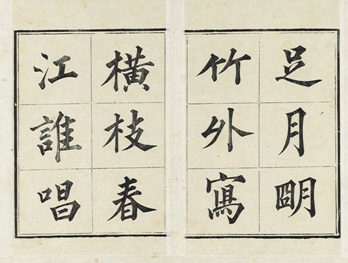 足月朙
竹外寫
橫枝春
江誰唱